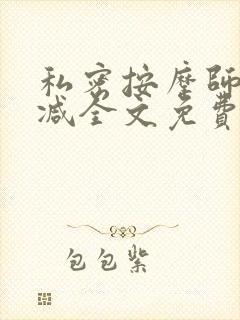 私密按摩師
减全文免費
包包紫